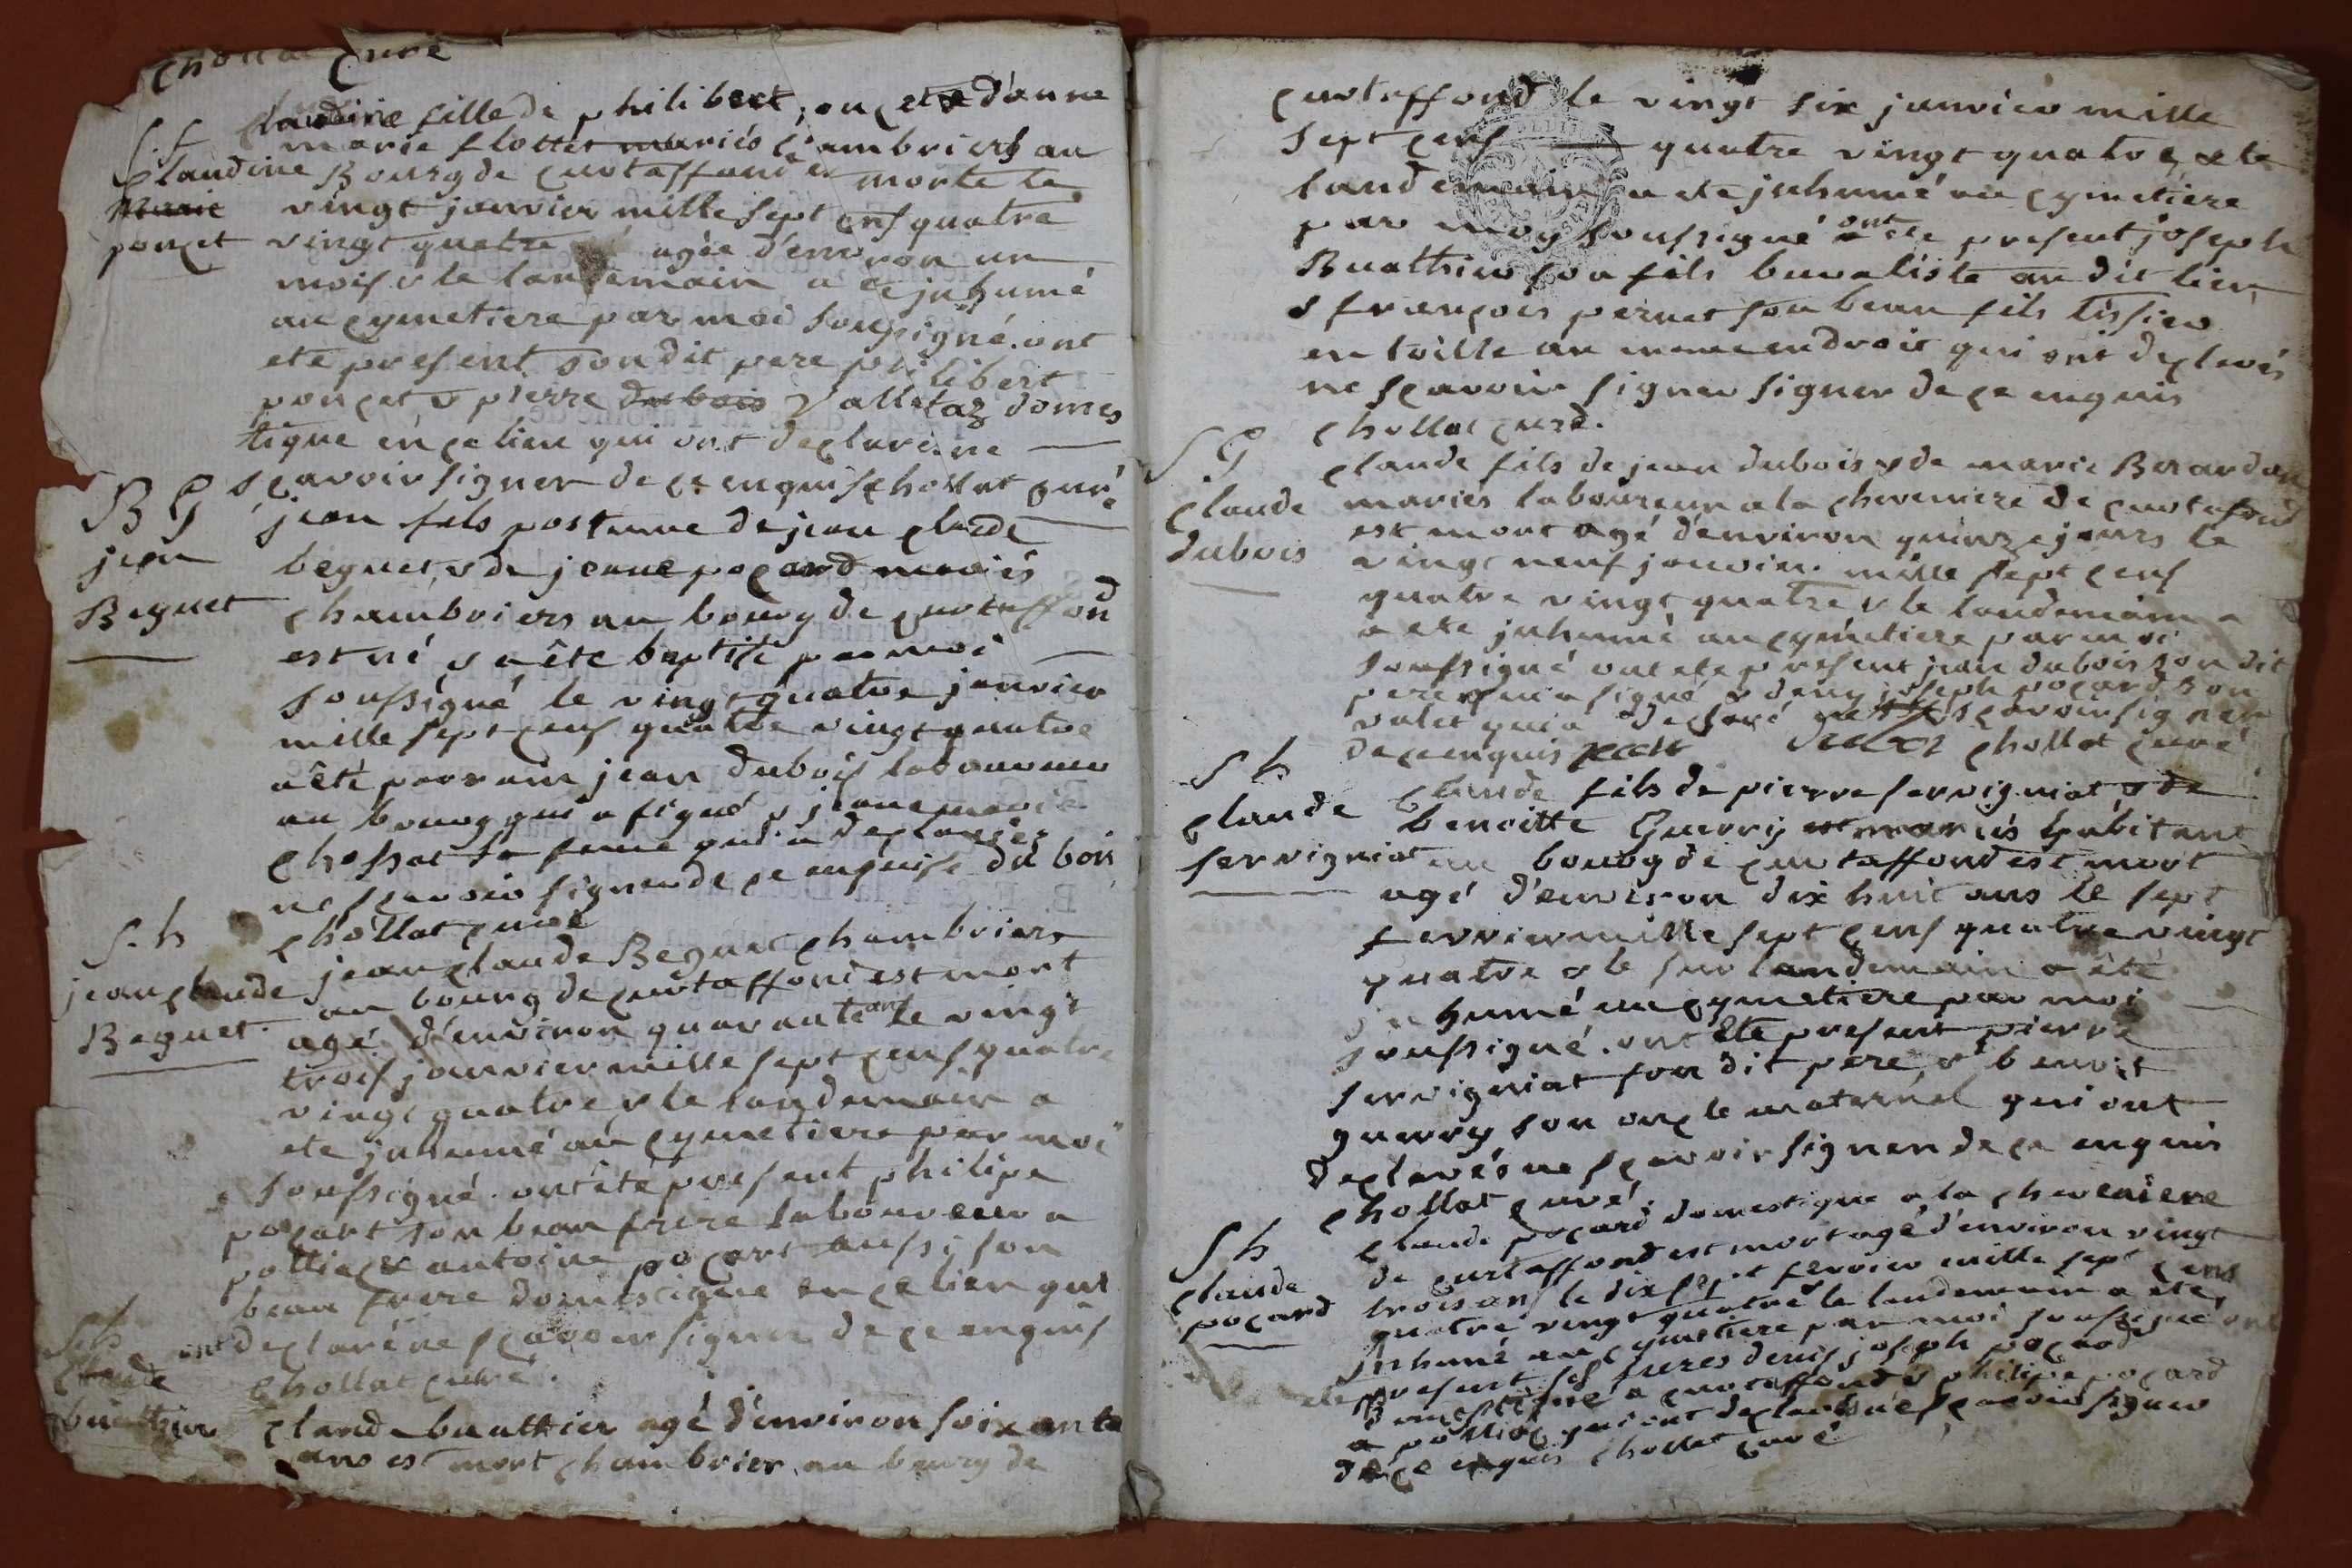 chollat curé
S. f
Claudine
Marie
ponçet
Claudine fille de philibert ponçet et d'anne
marie flottet mariés chambriers au
Bourg de curtaffond est morte le
vingt janvier mille sept cens quatre
vingt quatre agée d'environ un
mois & le landemain a été juhumé
au cymetiere par moi soussigné. ont
ete present son dit pere philibert
ponçet & pierre dubois Valletaz domes
tique en ce lieu qui ont declaré ne
sçavoir signer de ce enquis chollat curé
B G
jean
Beguet
jean fils postume de jean claude
beguet, & de jeanne poçard mariés
chambriers au bourg de curtaffond
est né & a été baptisé par moi
soussigné le vingt quatre janvier
mille sept cens quatre vingt quatre
a été parrain jean dubois laboureur
au bourg qui a signé & jeanne marie
chossat sa feme qui a declarée
ne sçavoir signer de ce enquise du bois
chollat curé
S. h
jean claude
Beguet.
jean claude Beguet chambriers
au bourg de curtaffond est mort
agé d'environ quarante ans le vingt
trois janvier mille sept cens quatre
vingt quatre & le landemain a
ete juhumé au cymetiere par moi
soussigné. ont été present philipe
poçart son beau frere laboureur a
polliaç & antoine poçart aussi son
beau frere domestique en ce lieu qui
ont declaré ne sçavoir signer de ce enquis
chollat curé.
S h
Claude
buathier
Claude buathier agé d'environ soixante
ans est mort chambrier au bourg de
curtaffond le vingt six janvier mille
sept cens quatre vingt quatre & le
landemain a ete juhumé au cymetiere
par moy soussigné ont ete present joseph
Buathier son fils buraliste au dit lieu
& françois pernet son beau fils tissier
en toille au meme endroit qui ont declarés
ne sçavoir signer signer de ce enquis
chollat curé.
S G
Claude
Dubois
Claude fils de jean dubois & de marie Berardan
mariés laboureur a la cheveniere de curtafond
est mort agé d'environ quinze jours le
vingt neuf janvier mille sept cens
quatre vingt quatre & le landemain a
a ete juhumé au cymetiere par moi
soussigné ont ete present jean dubois son dit
pere qui a signé & denis joseph poçard son
valet qui a declaré ne sçavoir signer
de ce enquis chollat curé
S h
Claude
servigniat
Claude fils de pierre servigniat & de
benoitte Guerry mariés habitant
au bourg de curtaffond est mort
agé d'environ dix huit ans le sept
fevrier mille sept cens quatre vingt
quatre & le sur landemain a été
juhumé au cymetiere par moi
soussigné. ont ete present pierre
servigniat son dit pere, & benoit
guerry son oncle maternel qui ont
declarés ne sçavoir signer de ce enquis
chollat curé.
S h
Claude
poçard
Claude poçard domestique a la cheveniere
de curtaffond est mort agé d'environ vingt
trois ans le dix sept fevrier mille sept cens
quatre vingt quatre & le landemain a été
juhumé au cymetiere par moi soussigné ont
ete present ses freres denis joseph poçard
domestique a curtaffond & philipe poçard
a polliaç qui ont declaré ne sçavoir signer
de ce enquis chollat curé